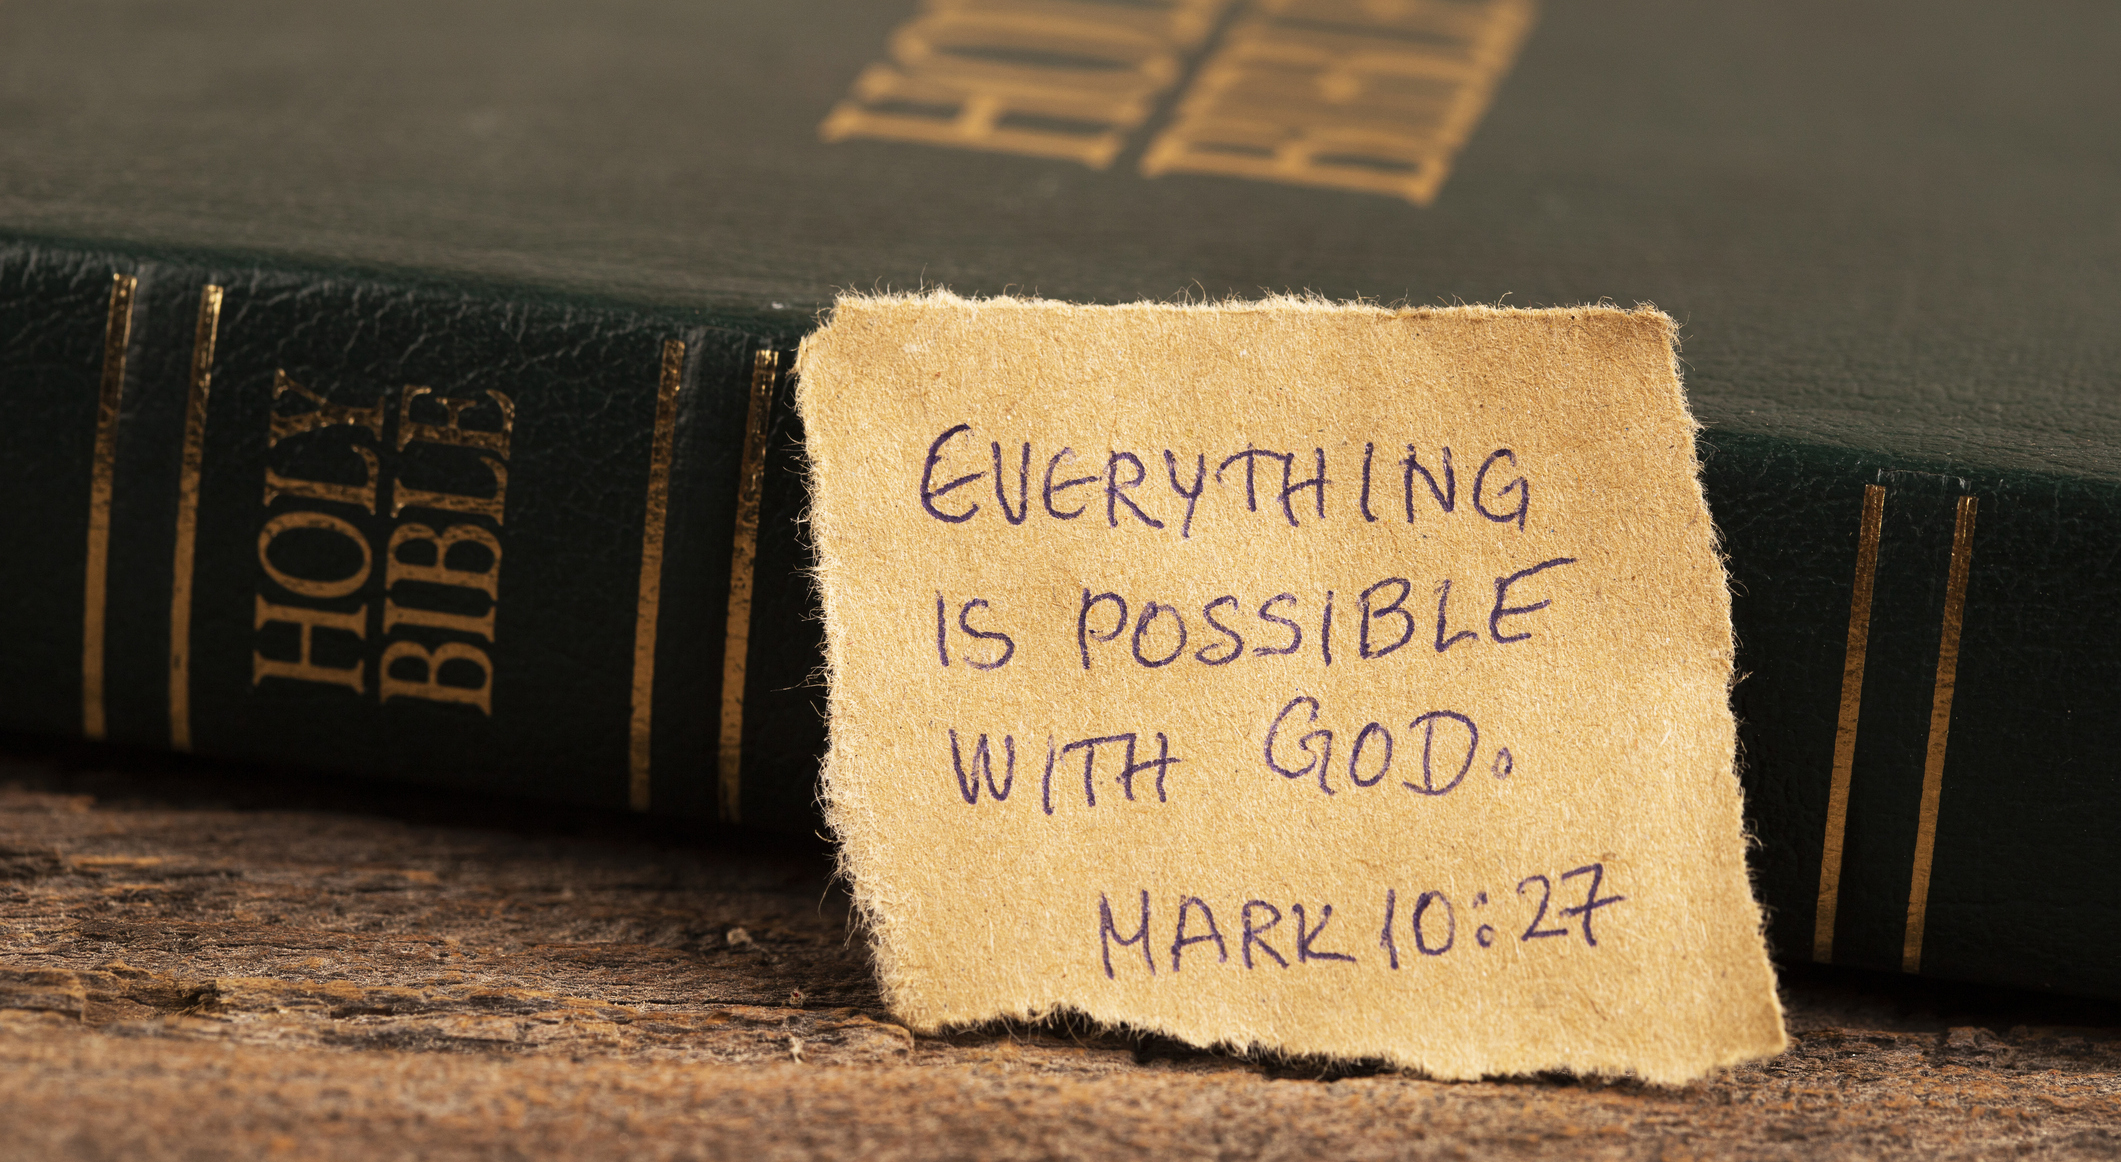 HOLY
BIBLE
HOLY
BIBLE
EVERYTHING
IS POSSIBLE
WITH GOD.
MARK 10:27